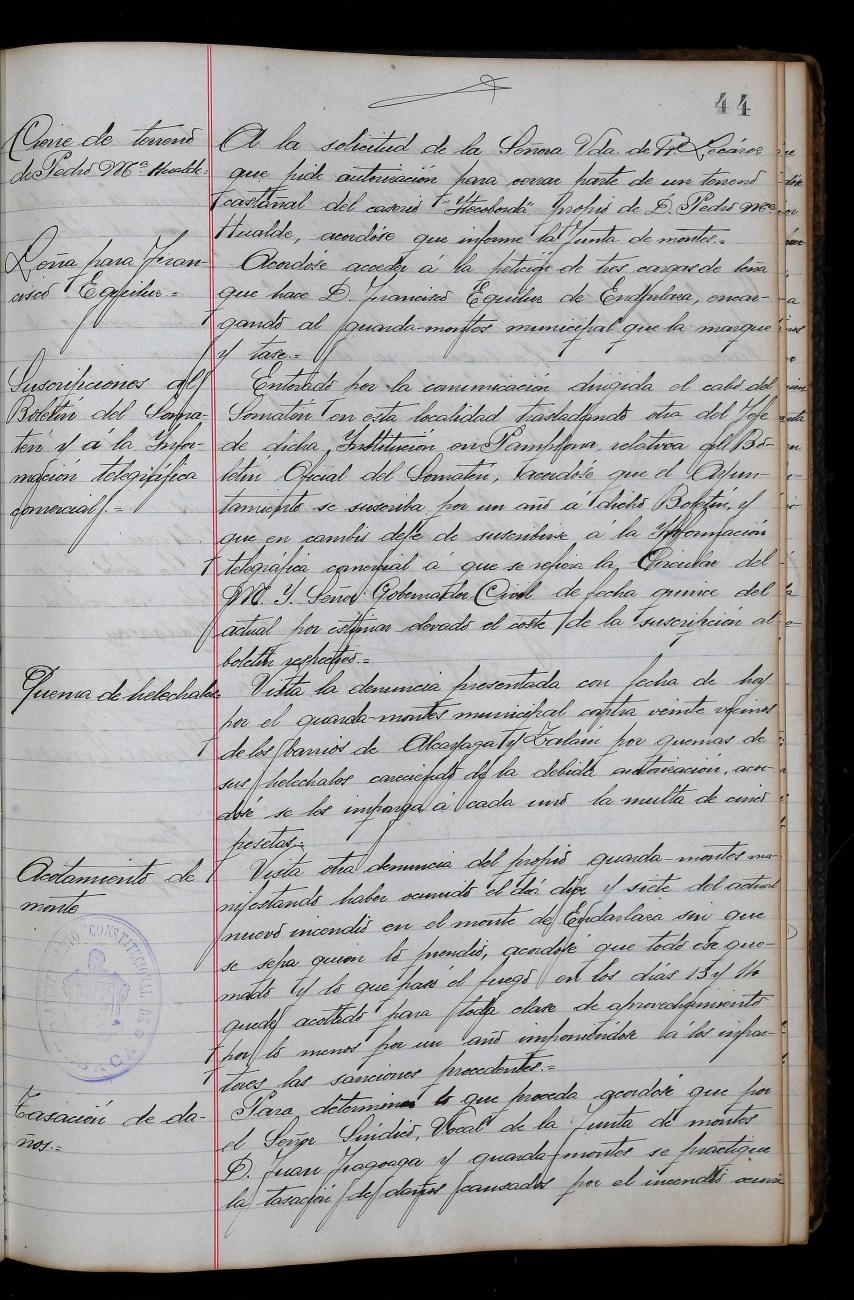 44
Cierre de terreno
de Pedro Mª Hualde.=
A la solicitud de la Señora Vda. de
que pide autorización para cerrar parte de un terreno
castañal del caserío "Itecobordá" propio de D. Pedro Mª
Hualde, acordóse que informe la Junta de montes.=
Leña para Fran-
cisco Eguilur.=
Acordóse acceder á la petición de tres cargas de leña
que hace D. Francisco Eguilur de Endarlaza, encar-
gando al guarda-montes municipal que la marque
y tase.=
Suscripciones al
Boletín del Soma-
tén y a la Infor-
mación telegráfica
comercial.=
Enterado por la comunicación dirigida el cabo del
Somatén en esta localidad trasladando otra del Jefe
de dicha Institución en Pamplona, relativa al Bo-
letín Oficial del Somatén, acordóse que el Ayun-
tamiento se suscriba por un año á dicho Boletín, y
que en cambio deje de suscribirse á la Información
telegráfica comercial á que se refiere la Circular del
M. Y. Señor Gobernador Civil de fecha quince del
actual por estimar elevado el coste de la suscripción al
boletín respectivo.=
Quema de helechales
Vista la denuncia presentada con fecha de hoy
por el guarda-montes municipal contra veinte vecinos
de los barrios de Alcayaga y Zalain por quemas de
sus helechales careciendo de la debida autorización, acor-
dóse se les imponga á cada uno la multa de cinco
pesetas.=
Acotamiento de
monte
Vista otra denuncia del propio guarda-montes ma-
nifestando haber ocurrido el día diez y siete del actual
nuevo incendio en el monte de Endarlaza sin que
se sepa quien lo prendió, acordóse que todo ese que-
mado y lo que pasó el fuego en los días 13 y 14
quede acotado para toda clase de aprovechamiento
por lo menos por un año imponiéndose á los infrac-
tores las sanciones procedentes.=
AYUNTAMIENTO CONSTITUCIONAL DE
Tasación de da-
ños.=
Para determinar lo que proceda acordóse que por
el Señor Síndico, Vocal de la Junta de montes
D. Juan Iragoaga y guarda-montes se practique
la tasación de daños causados por el incendio ocurri